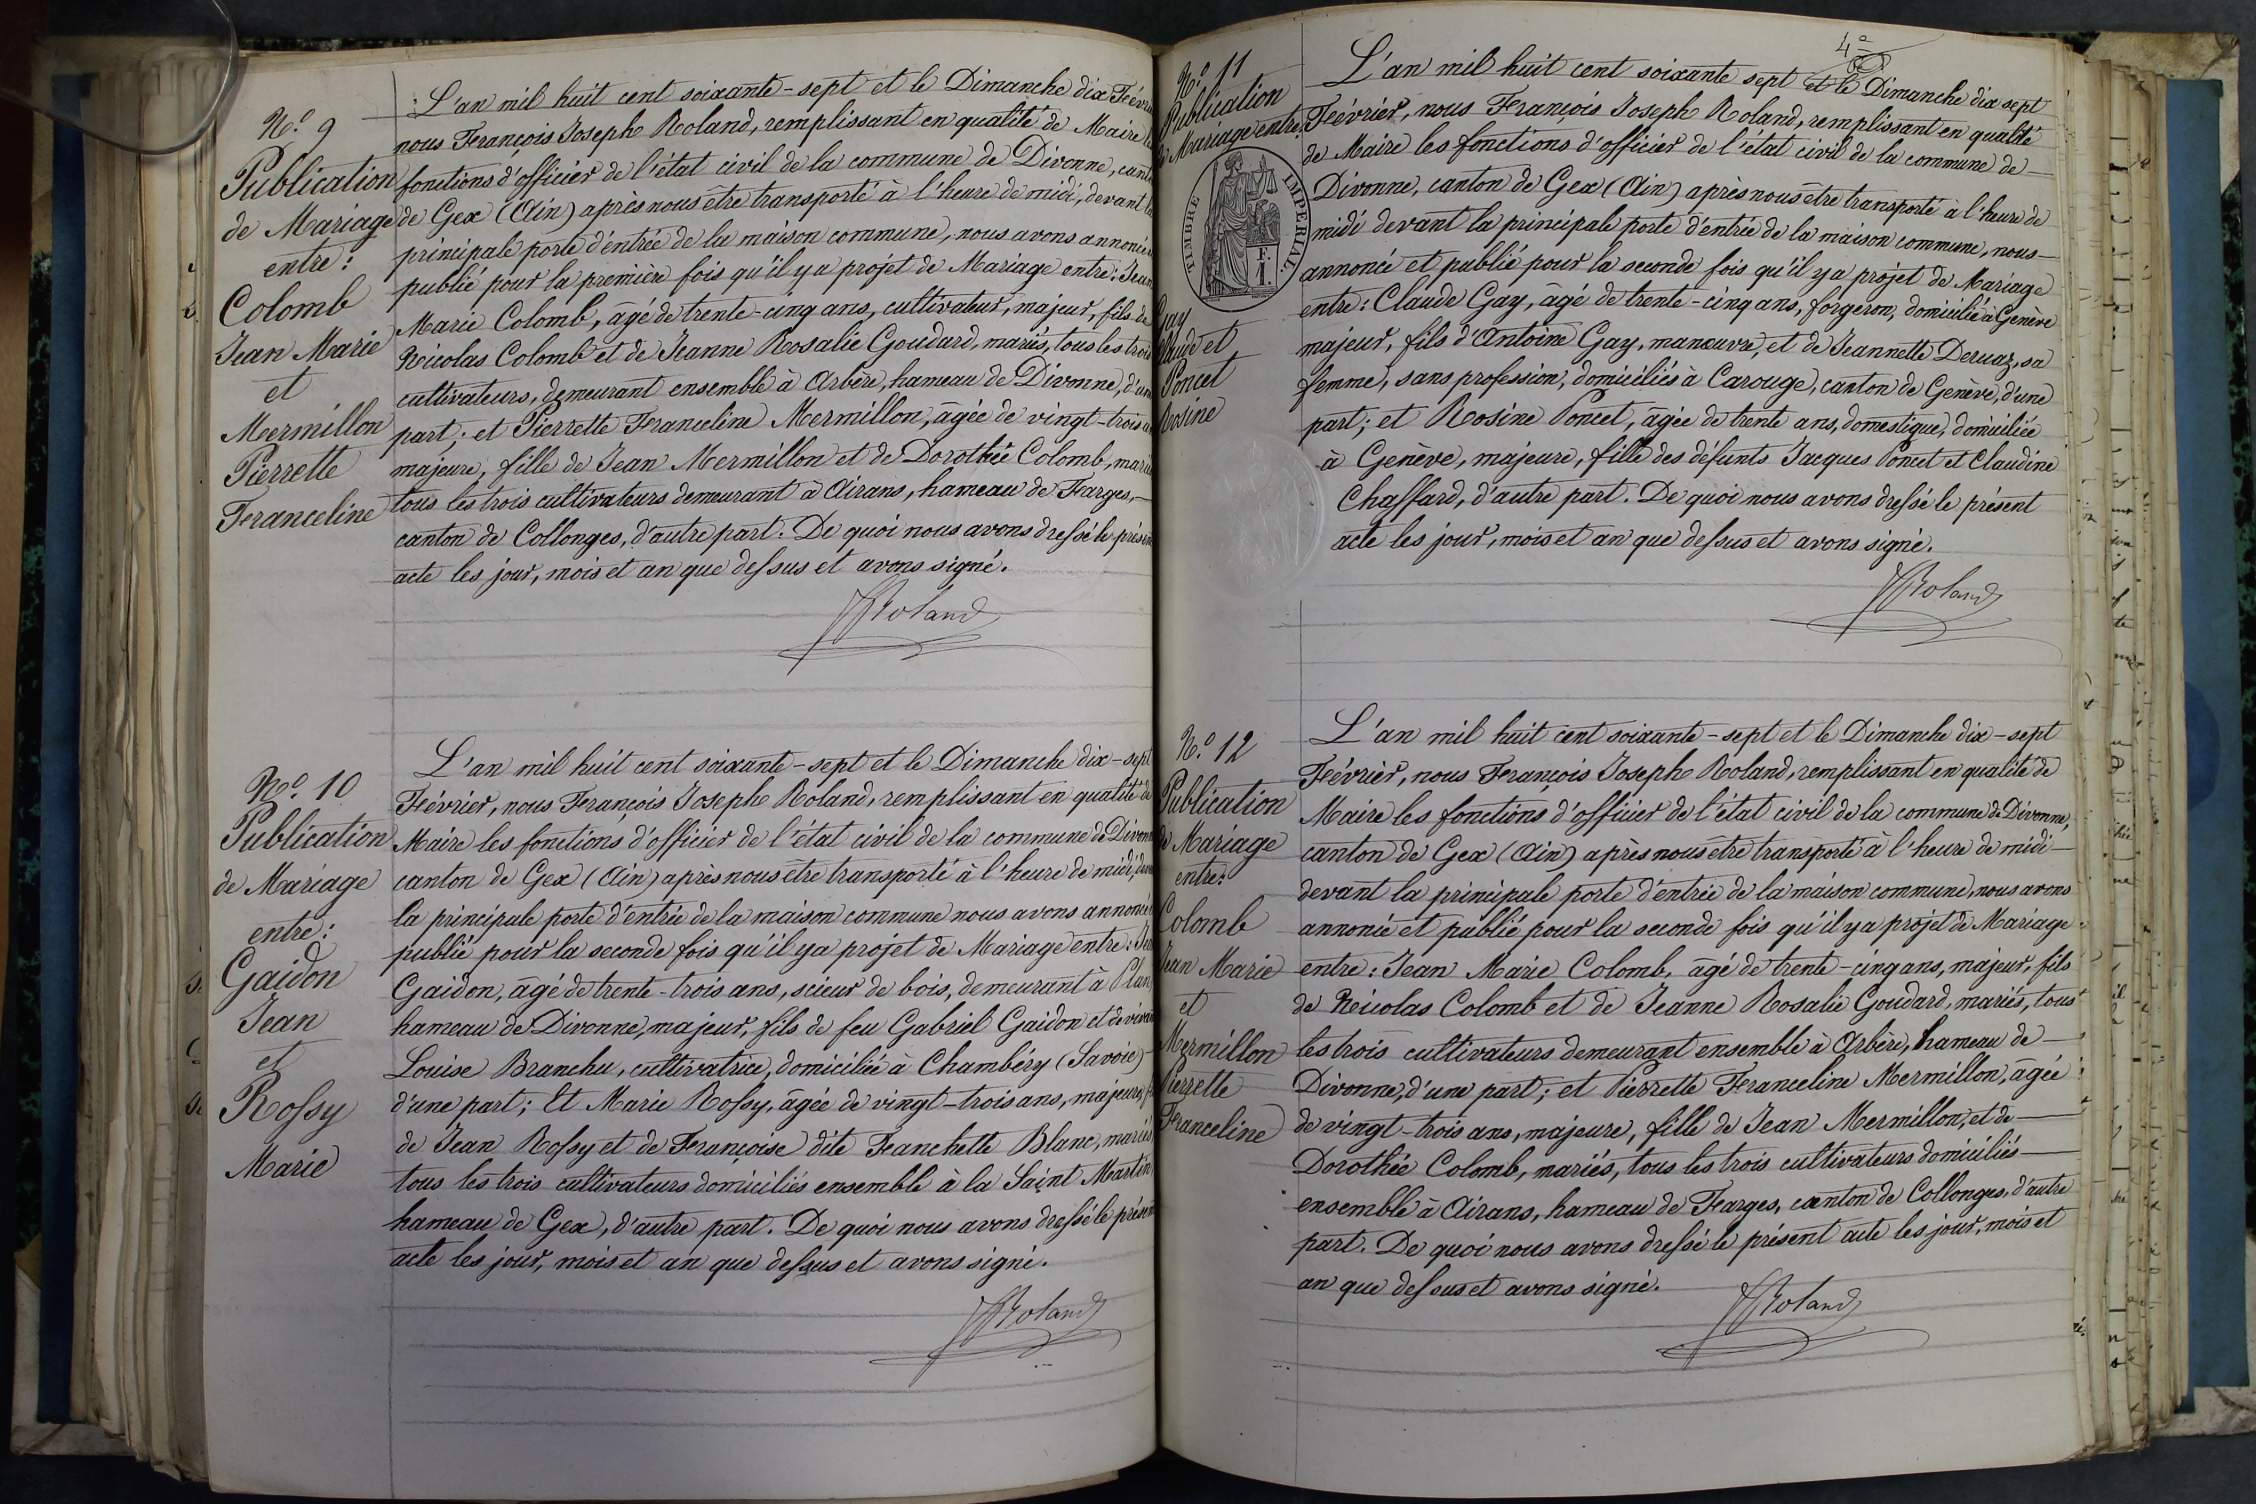 N.º 9
Publication
de Mariage
entre :
Colomb
Jean Marie
et
Mermillon
Pierrette
Franceline
L'an mil huit cent soixante-sept et le Dimanche dix
nous François Joseph Roland, remplissant en qualité de Maire
fonctions d'officier de l'état civil de la commune de Divonne,
de Gex (Ain) après nous être transporté à l'heure de midi, devant
principale porte d'entrée de la maison commune, nous avons
publié pour la première fois qu'il y a projet de Mariage entre : Jean
Marie Colomb, âgé de trente-cinq ans, cultivateur, majeur, fils de
Nicolas Colomb et de Jeanne Rosalie Goudard, mariés, tous les trois
cultivateurs, demeurant ensemble à Arbère, hameau de Divonne,
part ; et Pierrette Franceline Mermillon, âgée de vingt-trois
majeure, fille de Jean Mermillon et de Dorothée Colomb,
tous les trois cultivateurs demeurant à Airans, hameau de Farges,
canton de Collonges, d'autre part. De quoi nous avons dressé le
acte les jour, mois et an que dessus et avons signé.
Roland
N.º 10
Publication
de Mariage
entre :
Gaidon
Jean
et
Rossy
Marie
L'an mil huit cent soixante-sept et le Dimanche dix-sept
Février, nous François Joseph Roland, remplissant en qualité
Maire les fonctions d'officier de l'état civil de la commune de
canton de Gex (Ain) après nous être transporté à l'heure de midi,
la principale porte d'entrée de la maison commune nous avons
publié pour la seconde fois qu'il y a projet de Mariage entre :
Gaidon, âgé de trente-trois ans, scieur de bois, demeurant à Plan,
hameau de Divonne, majeur, fils de feu Gabriel Gaidon et de
Louise Branchu, cultivatrice, domiciliée à Chambéry (Savoie)
d'une part ; Et Marie Rossy, âgée de vingt-trois ans, majeure,
de Jean Rossy et de Françoise dite Franchette Blanc, mariés,
tous les trois cultivateurs domiciliés ensemble à la Saint Martin,
hameau de Gex, d'autre part. De quoi nous avons dressé le
acte les jour, mois et an que dessus et avons signé.
Roland
4e
N.º 11
Publication
Mariage entre :
TIMBRE IMPÉRIAL
Gay
Claude et
Poncet
Rosine
L'an mil huit cent soixante sept et le Dimanche dix sept
Février, nous François Joseph Roland, remplissant en qualité
de Maire les fonctions d'officier de l'état civil de la commune de
Divonne, canton de Gex (Ain) après nous être transporté à l'heure de
midi devant la principale porte d'entrée de la maison commune, nous
annoncé et publié pour la seconde fois qu'il y a projet de Mariage
entre : Claude Gay, âgé de trente-cinq ans, forgeron, domicilié à Genève
majeur, fils d'Antoine Gay, manœuvre, et de Jeannette Deruaz, sa
femme, sans profession, domiciliés à Carouge, canton de Genève, d'une
part ; et Rosine Poncet, âgée de trente ans, domestique, domiciliée
à Genève, majeure, fille des défunts Jacques Poncet et Claudine
Chaffard, d'autre part. De quoi nous avons dressé le présent
acte les jour, mois et an que dessus et avons signé.
Roland
N.º 12
Publication
de Mariage
entre :
Colomb
Jean Marie
et
Mermillon
Pierrette
Franceline
L'an mil huit cent soixante-sept et le Dimanche dix-sept
Février, nous François Joseph Roland, remplissant en qualité de
Maire les fonctions d'officier de l'état civil de la commune de Divonne,
canton de Gex (Ain) après nous être transporté à l'heure de midi
devant la principale porte d'entrée de la maison commune, nous avons
annoncé et publié pour la seconde fois qu'il y a projet de Mariage
entre : Jean Marie Colomb, âgé de trente-cinq ans, majeur, fils
de Nicolas Colomb et de Jeanne Rosalie Goudard, mariés, tous
les trois cultivateurs demeurant ensemble à Arbère, hameau de
Divonne, d'une part ; et Pierrette Franceline Mermillon, âgée
de vingt-trois ans, majeure, fille de Jean Mermillon, et de
Dorothée Colomb, mariés, tous les trois cultivateurs domiciliés
ensemble à Airans, hameau de Farges, canton de Collonges, d'autre
part. De quoi nous avons dressé le présent acte les jour, mois et
an que dessus et avons signé.
Roland